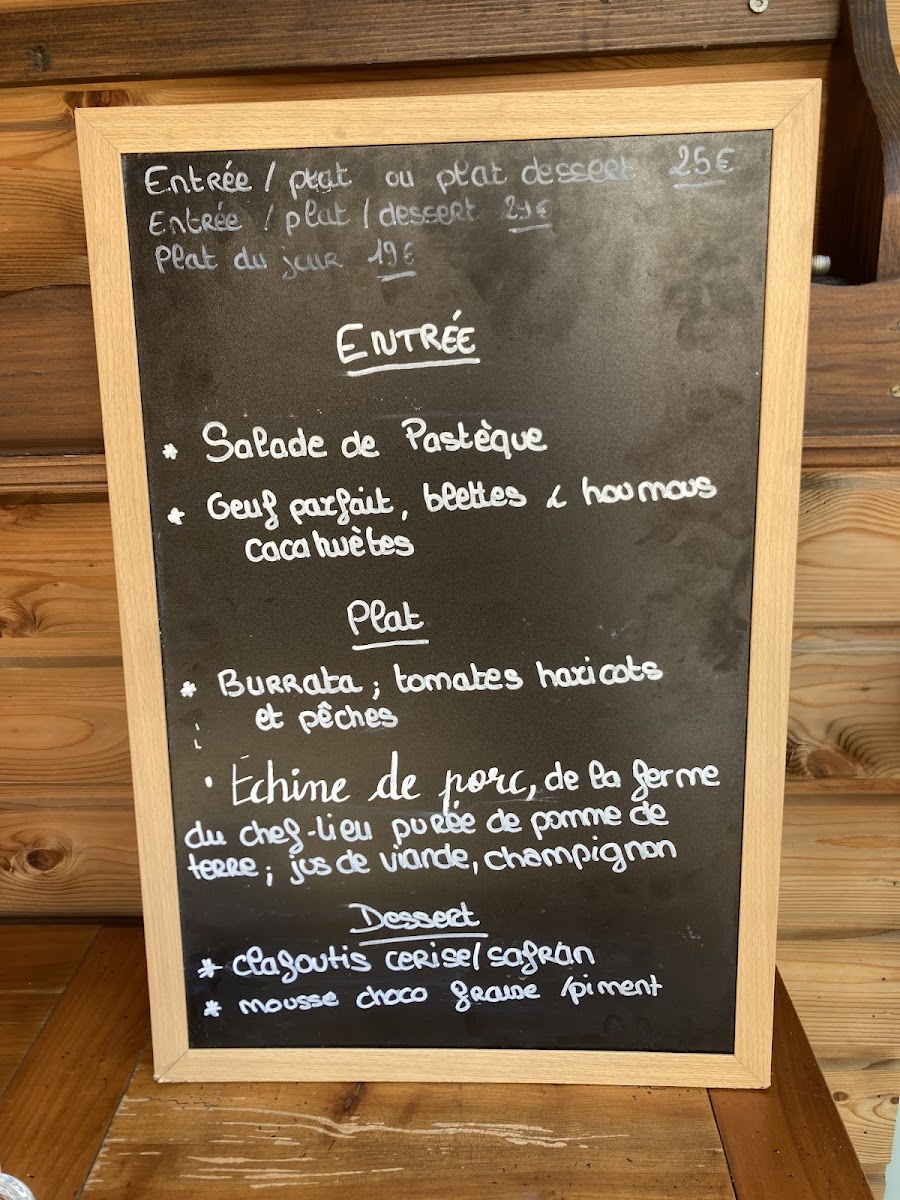 Entrée / plat ou plat dessert 25€
Entrée / plat / dessert
Plat du jour 19€
ENTRÉE
* Salade de Pastèque
* Oeuf parfait, blettes & houmous
cacahuètes
Plat
* BURRata ; tomates haricots
et pêches
• Échine de porc, de la ferme
du chef-lieu purée de pomme de
terre ; jus de viande, champignon
Dessert
* clafoutis cerise/safran
* mousse choco fraise /piment